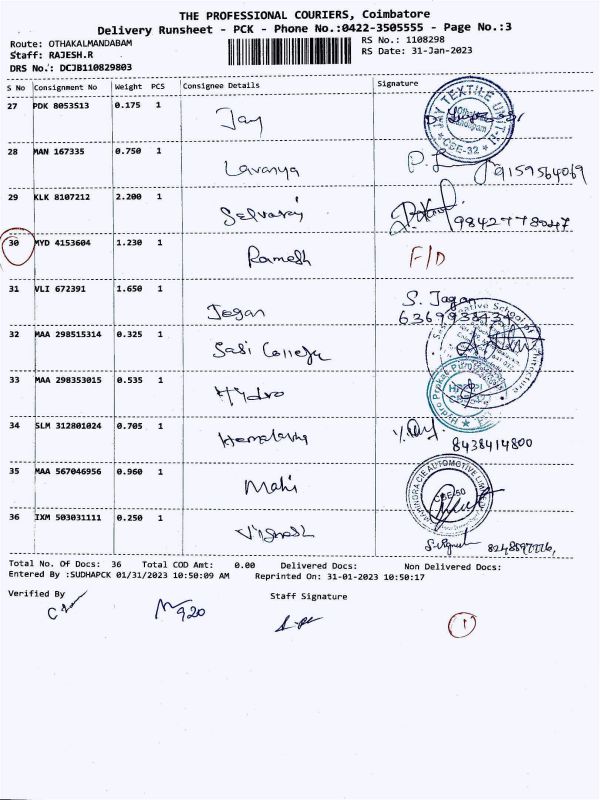 THE PROFESSIONAL COURIERS, Coimbatore
Delivery Runsheet - PCK - Phone No.:0422-3505555 - Page No.:3
Route: OTHAKALMANDABAM RS No.: 1108298
Staff: RAJESH.R RS Date: 31-Jan-2023
DRS No.: DCJB110829803
S No Consignment No Weight PCS Consignee Details Signature
27 PDK 8053513 0.175 1 Jay
JAY TEXTILE UNIT-II CBE-32
28 MAN 167335 0.750 1 Lavanya P. L 9159564069
29 KLK 8107212 2.200 1 Selvaraj
30 MYD 4153604 1.230 1 Ramesh F/D
31 VLI 672391 1.650 1 Jegan S. Jagan
32 MAA 298515314 0.325 1 Sasi College
33 MAA 298353015 0.535 1 Hydro
34 SLM 312801024 0.705 1 8438414800
35 MAA 567046956 0.960 1 Mahi
CBE-50
36 IXM 503031111 0.250 1 Vignesh
Total No. Of Docs: 36 Total COD Amt: 0.00 Delivered Docs: Non Delivered Docs:
Entered By :SUDHAPCK 01/31/2023 10:50:09 AM Reprinted On: 31-01-2023 10:50:17
Verified By Staff Signature
920
1